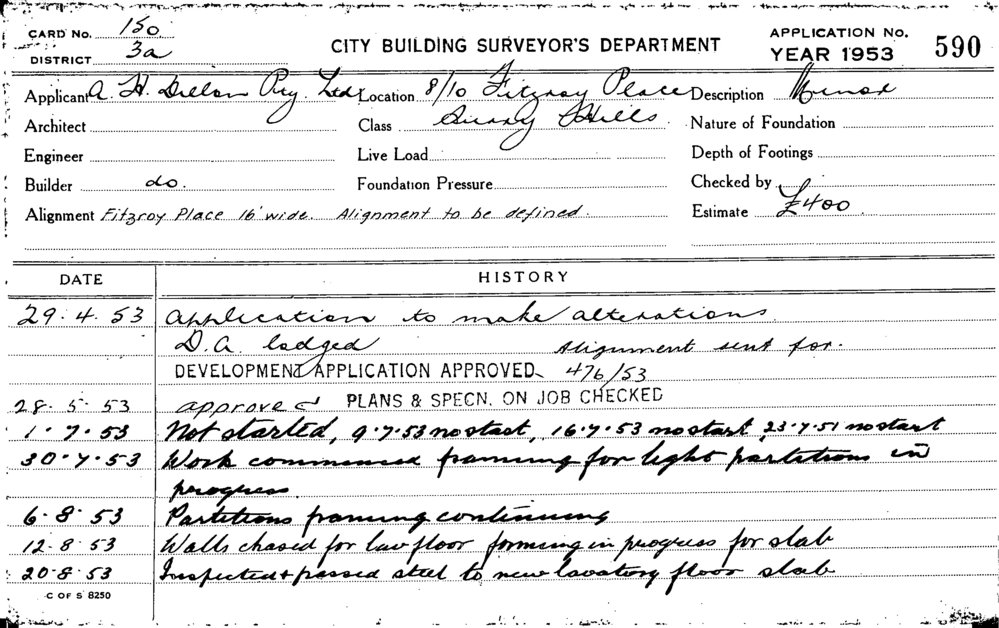 CARD No. 150
DISTRICT 3a
CITY BUILDING SURVEYOR'S DEPARTMENT
APPLICATION NO.
YEAR 1953 590
Applicant A. H. Dillon Pty. Ltd. Location 8/10 Fitzroy Place Description Minor
Architect Class Surry Hills Nature of Foundation
Engineer Live Load Depth of Footings
Builder do. Foundation Pressure Checked by
Alignment Fitzroy Place 16' wide. Alignment to be defined. Estimate £400
DATE HISTORY
29.4.53 Application to make alterations
D.A. lodged Alignment sent for.
DEVELOPMENT APPLICATION APPROVED 476/53
28.5.53 approved PLANS & SPECN. ON JOB CHECKED
1.7.53 Not started, 9.7.53 no start, 16.7.53 no start, 23.7.51 no start
30.7.53 Work commenced framing for light partitions in
progress.
6.8.53 Partitions framing continuing
12.8.53 Walls chased for lav floor forming in progress for slab
20.8.53 Inspected & passed steel to new lavatory floor slab
C OF S 8250